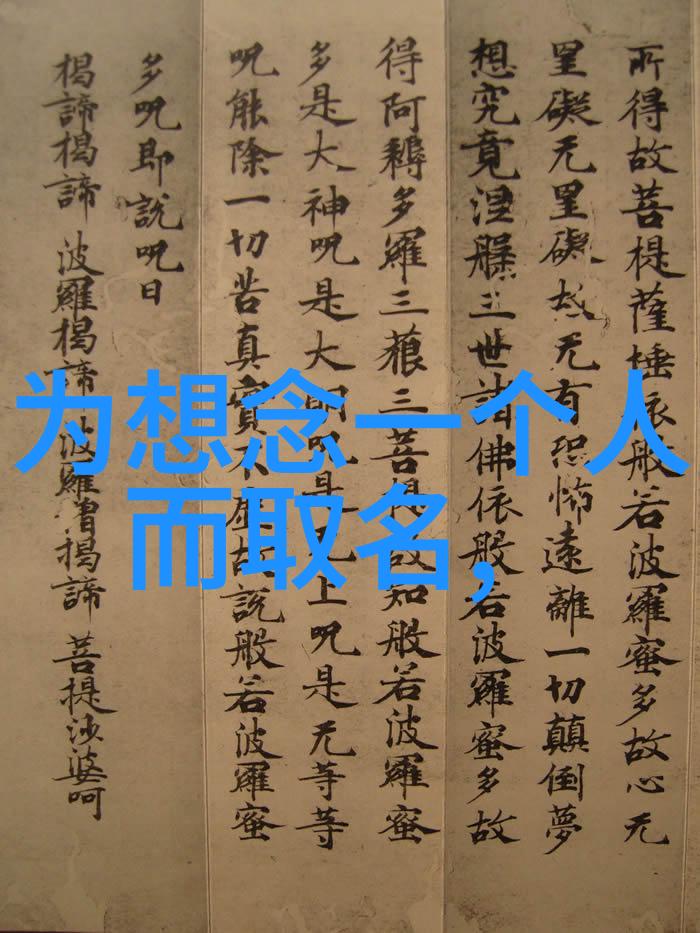 所得故菩提薩埵依般若波羅蜜多故心无
罣礙无罣礙故无有恐怖遠離一切顛倒夢
想究竟涅槃三世諸佛依般若波羅蜜多故
得阿耨多羅三藐三菩提故知般若波羅蜜
多是大神呪是大明呪是无上呪是无等等
呪能除一切苦真實不虛故說般若波羅蜜
多呪即說呪曰
揭諦揭諦 波羅揭諦 波羅僧揭諦 菩提沙婆呵
为想念一个人
而取名,